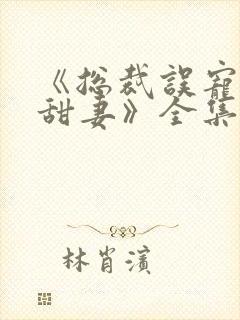 《总裁误寵
甜妻》全集
林肖濱